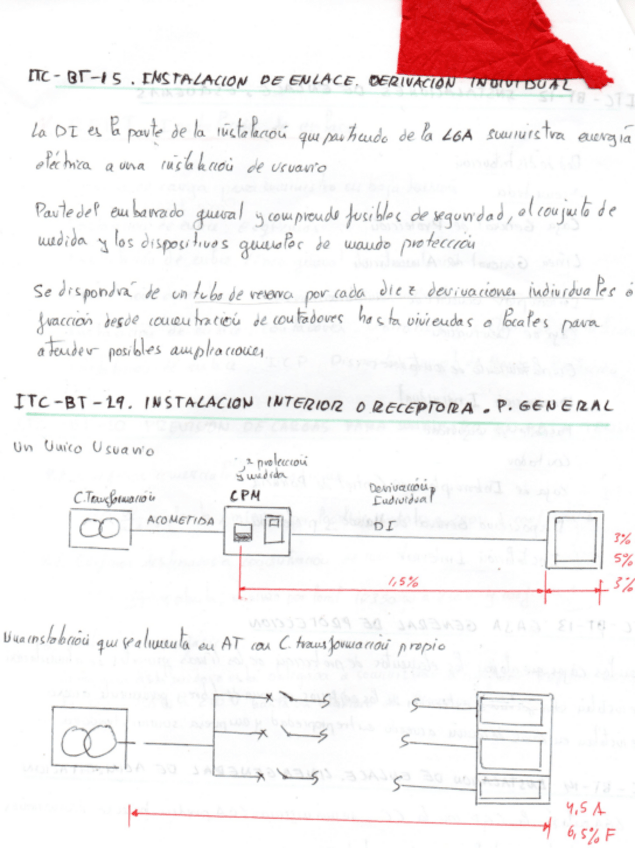 ITC-BT-15. INSTALACION DE ENLACE. DERIVACION INDIVIDUAL
La DI es la parte de la instalación que partiendo de la LGA suministra energía
eléctrica a una instalación de usuario
Parte del embarrado general y comprende fusibles de seguridad, el conjunto de
medida y los dispositivos generales de mando protección
Se dispondrá de un tubo de reserva por cada diez derivaciones individuales o
fracción desde concentración de contadores hasta viviendas o locales para
atender posibles ampliaciones
ITC-BT-19. INSTALACION INTERIOR O RECEPTORA. P. GENERAL
Un Único Usuario
protección
medida
C.Transformación
CPM
Derivación
Individual
ACOMETIDA
DI
3%
5%
1,5%
3%
Una instalación que se alimenta en AT con C. transformación propio
4,5 A
6,5% F